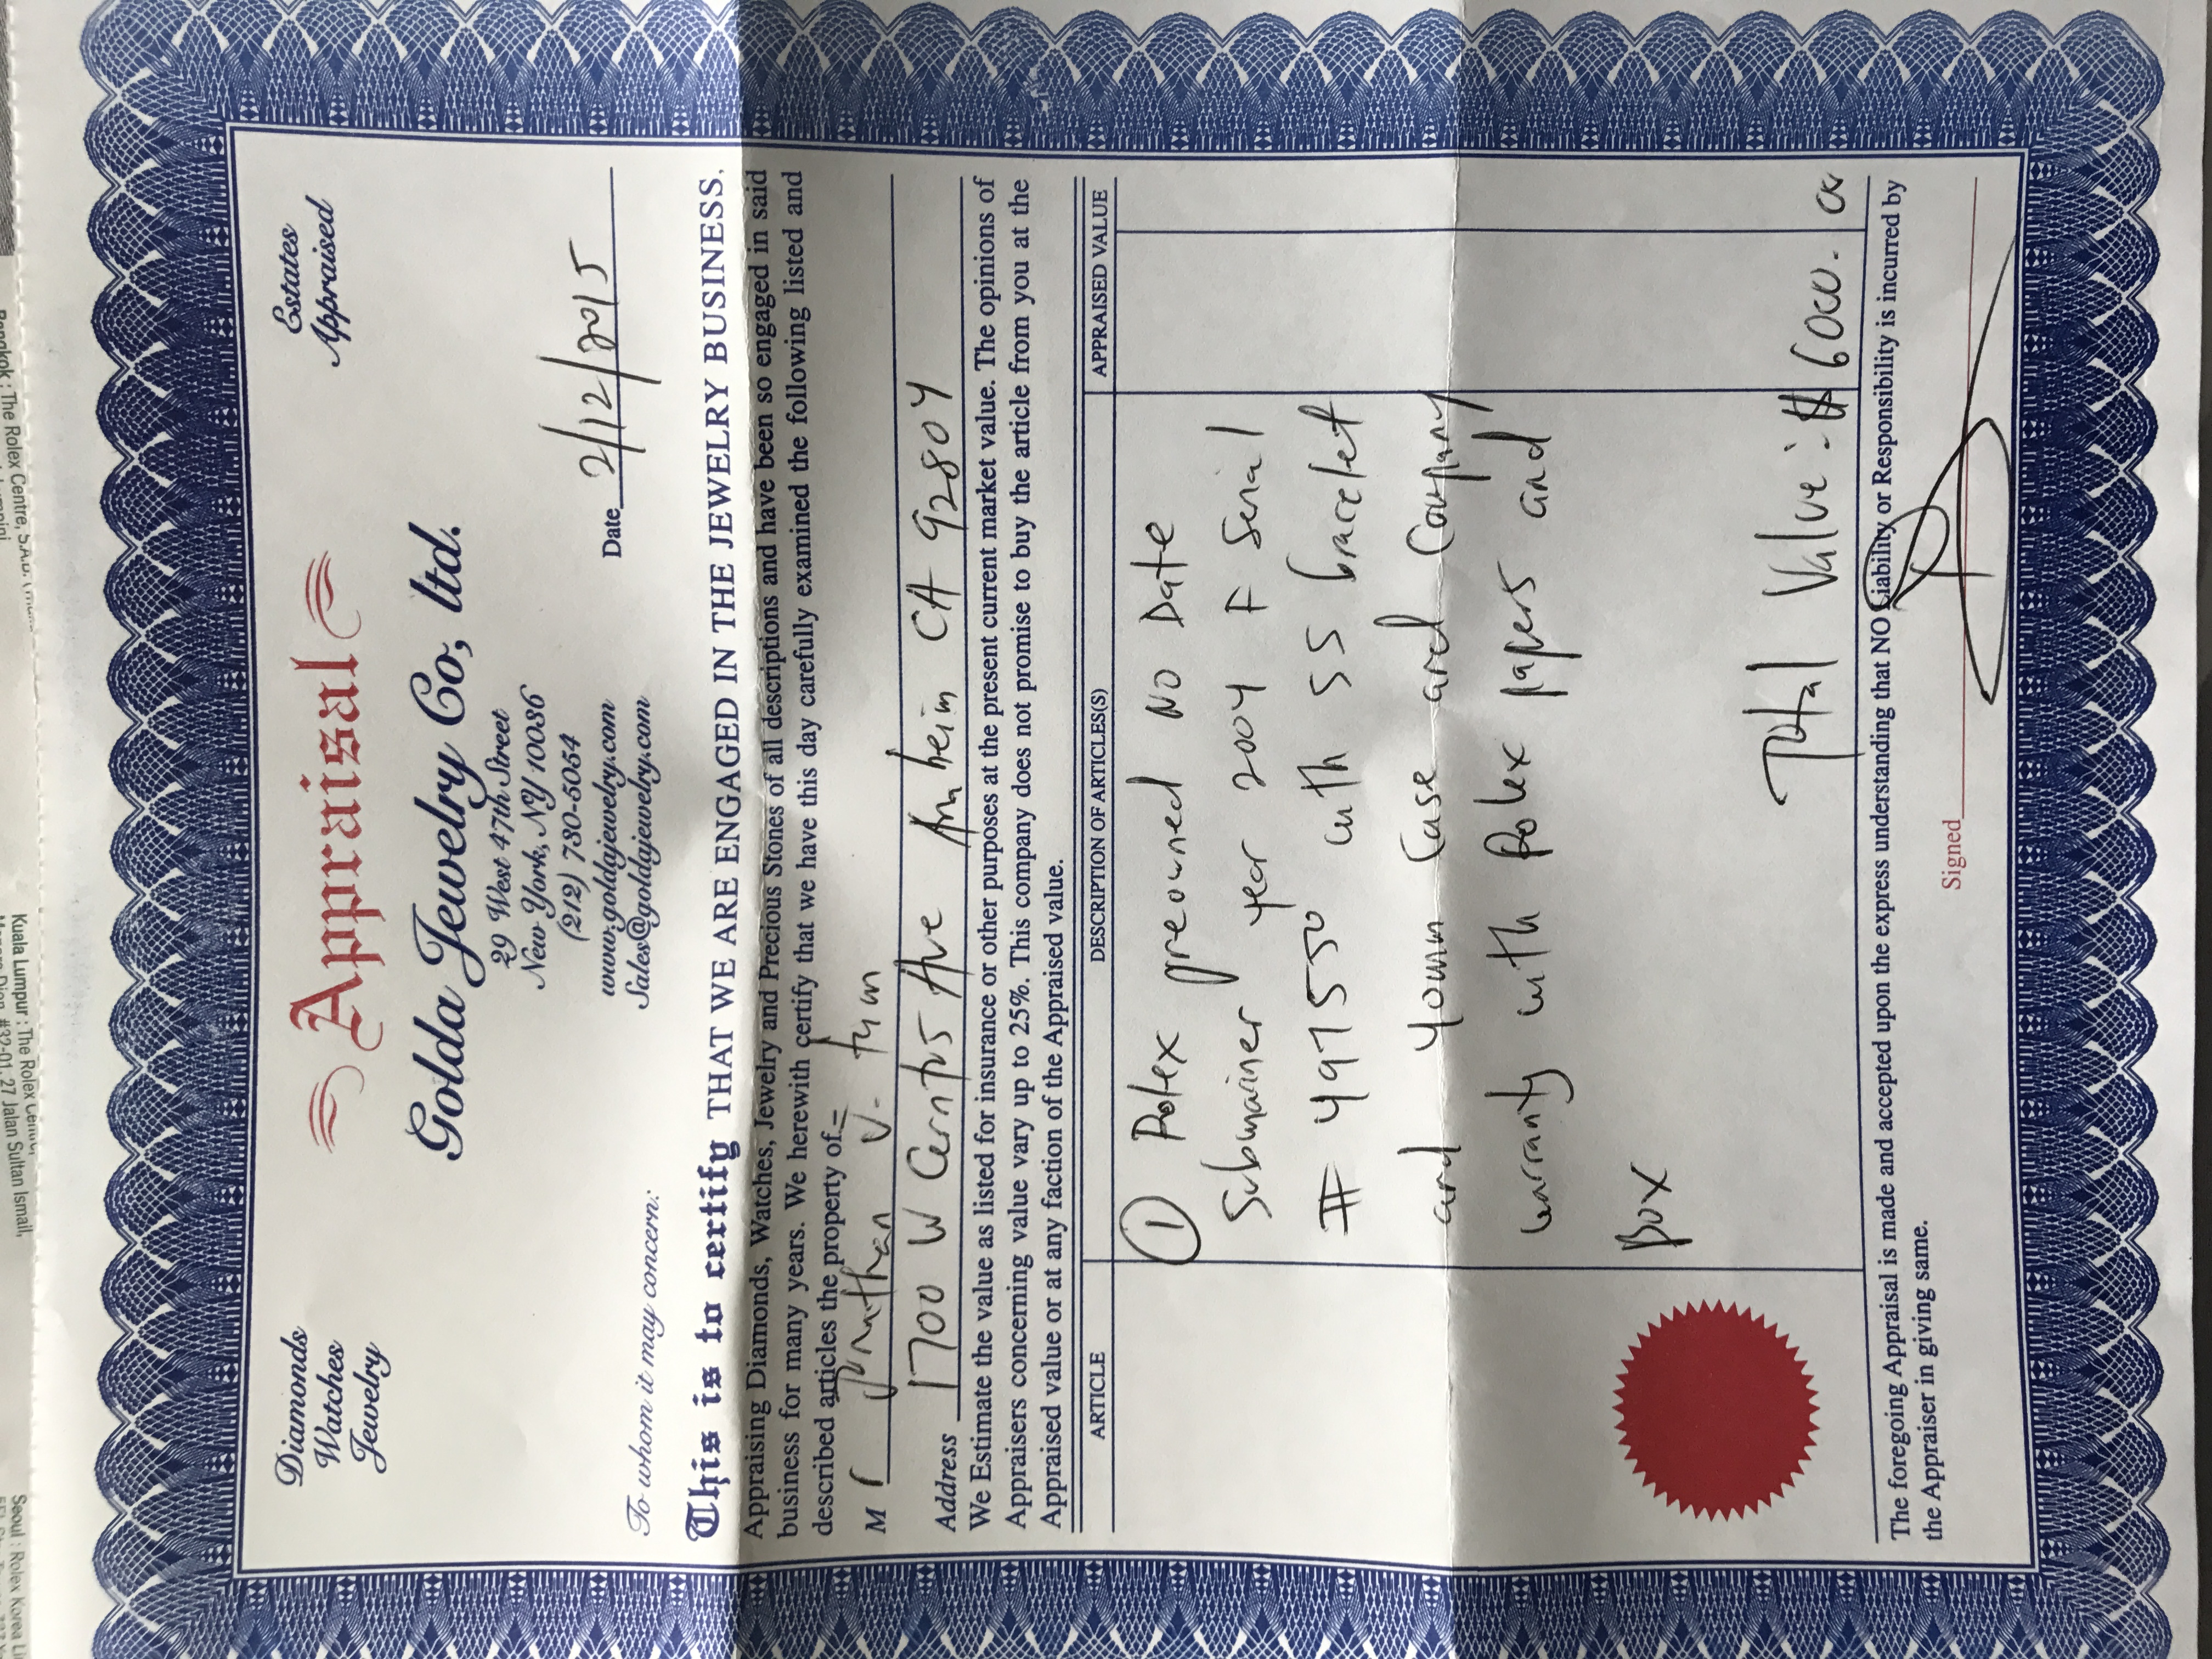 Diamonds
Watches
Jewelry
Appraisal
Estates
Appraised
Golda Jewelry Co, ltd.
29 West 47th Street
New York, NY 10036
(212) 730-5054
www.goldajewelry.com
Sales@goldajewelry.com
To whom it may concern:
Date 2/12/2015
This is to certify THAT WE ARE ENGAGED IN THE JEWELRY BUSINESS,
Appraising Diamonds, Watches, Jewelry and Precious Stones of all descriptions and have been so engaged in said
business for many years. We herewith certify that we have this day carefully examined the following listed and
described articles the property of
Mr V.
Address 1700 W Cerritos Ave Anaheim CA 92804
We Estimate the value as listed for insurance or other purposes at the present current market value. The opinions of
Appraisers concerning value vary up to 25%. This company does not promise to buy the article from you at the
Appraised value or at any faction of the Appraised value.
ARTICLE DESCRIPTION OF ARTICLES(S) APPRAISED VALUE
① Rolex preowned NO Date
Submariner year 2004 F Serial
# 497550 with SS bracelet
and 40mm case and Company
warranty with Rolex papers and
Box
Total Value:- $ 6000.00
The foregoing Appraisal is made and accepted upon the express understanding that NO Liability or Responsibility is incurred by
the Appraiser in giving same.
Signed
Kuala Lumpur : The Rolex
#32-01, 27 Jalan Sultan Ismail,
: The Rolex Centre,
Seoul : Rolex Korea